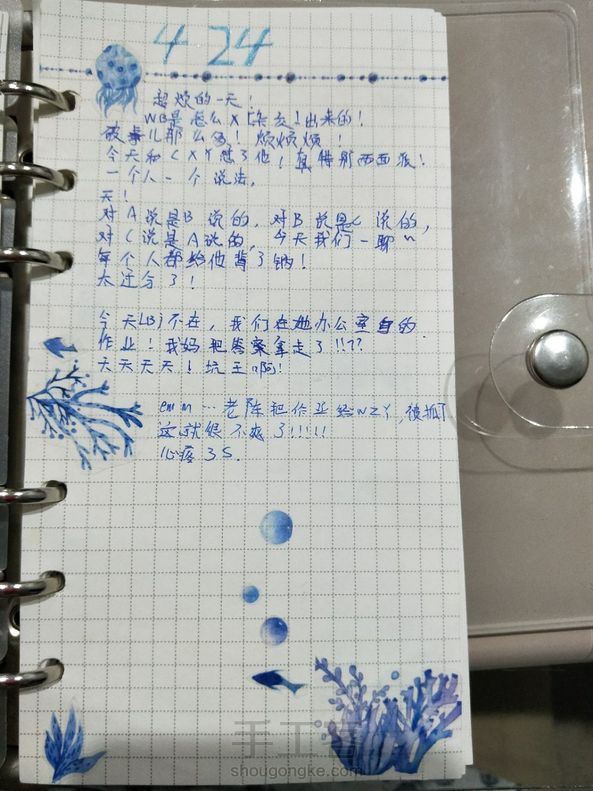 4 24
超烦的一天!
WB是怎么X 出来的!
破事儿那么多! 烦烦烦!
今天和CXY怼了他!真特别西西派!
一个人一个说法,
天!
对A说是B说的,对B说是C说的,
对C说是A说的,今天我们一聊~
每个人都给他背了锅!
太过分了!
今天LBJ不在,我们在她办公室自的
作业!我妈把答案拿走了!!??
天天天天!坑王啊!
emm…老陈把作业给WZY,被抓
这就很不爽了!!!!!
心疼3S.
手工客
shougongke.com